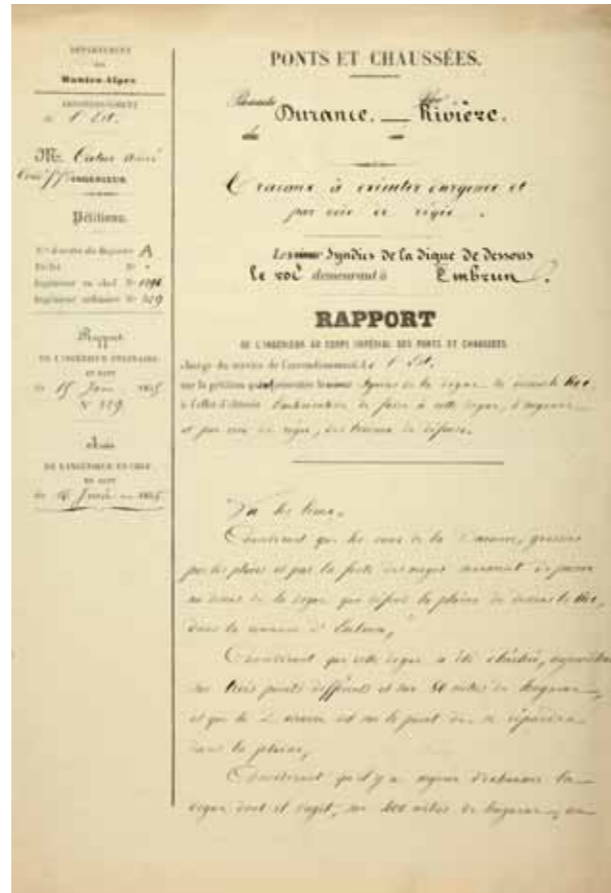 DÉPARTEMENT
des
Hautes-Alpes
ARRONDISSEMENT
de l'Est.
Mr.
INGÉNIEUR
Pétitions.
Nos d'ordre du Registre A
Ingénieur en chef No
Ingénieur ordinaire No 529
Rapport
DE L'INGÉNIEUR ORDINAIRE
EN DATE
du 15 Juin
No 529
Avis
DE L'INGÉNIEUR EN CHEF
EN DATE
du 16 Juin
PONTS ET CHAUSSÉES.
Durance. Rivière.
Travaux à exécuter d'urgence et
par voie de régie.
Syndics de la digue de dessous
le roc demeurant à Embrun.
RAPPORT
DE L'INGÉNIEUR AU CORPS IMPÉRIAL DES PONTS ET CHAUSSÉES
chargé du service de l'arrondissement de l'Est.
sur la pétition présentée Syndics de la digue de dessous le Roc
à l'effet d'obtenir l'autorisation de faire à cette digue, d'urgence
et par voie de régie, des travaux de défense.
Vu les lieux.
Considérant que les eaux de la Durance, grossies
par les pluies et par la fonte des neiges de passer
au dessus de la digue qui défend la plaine de dessous le Roc,
dans la commune d'Embrun,
Considérant que cette digue a été
sur trois points différents et sur 80 mètres de longueur,
et que la Durance est sur le point de se répandre
dans la plaine,
Considérant qu'il y a urgence d'exhausser la
digue dont il s'agit, sur mètres de longueur